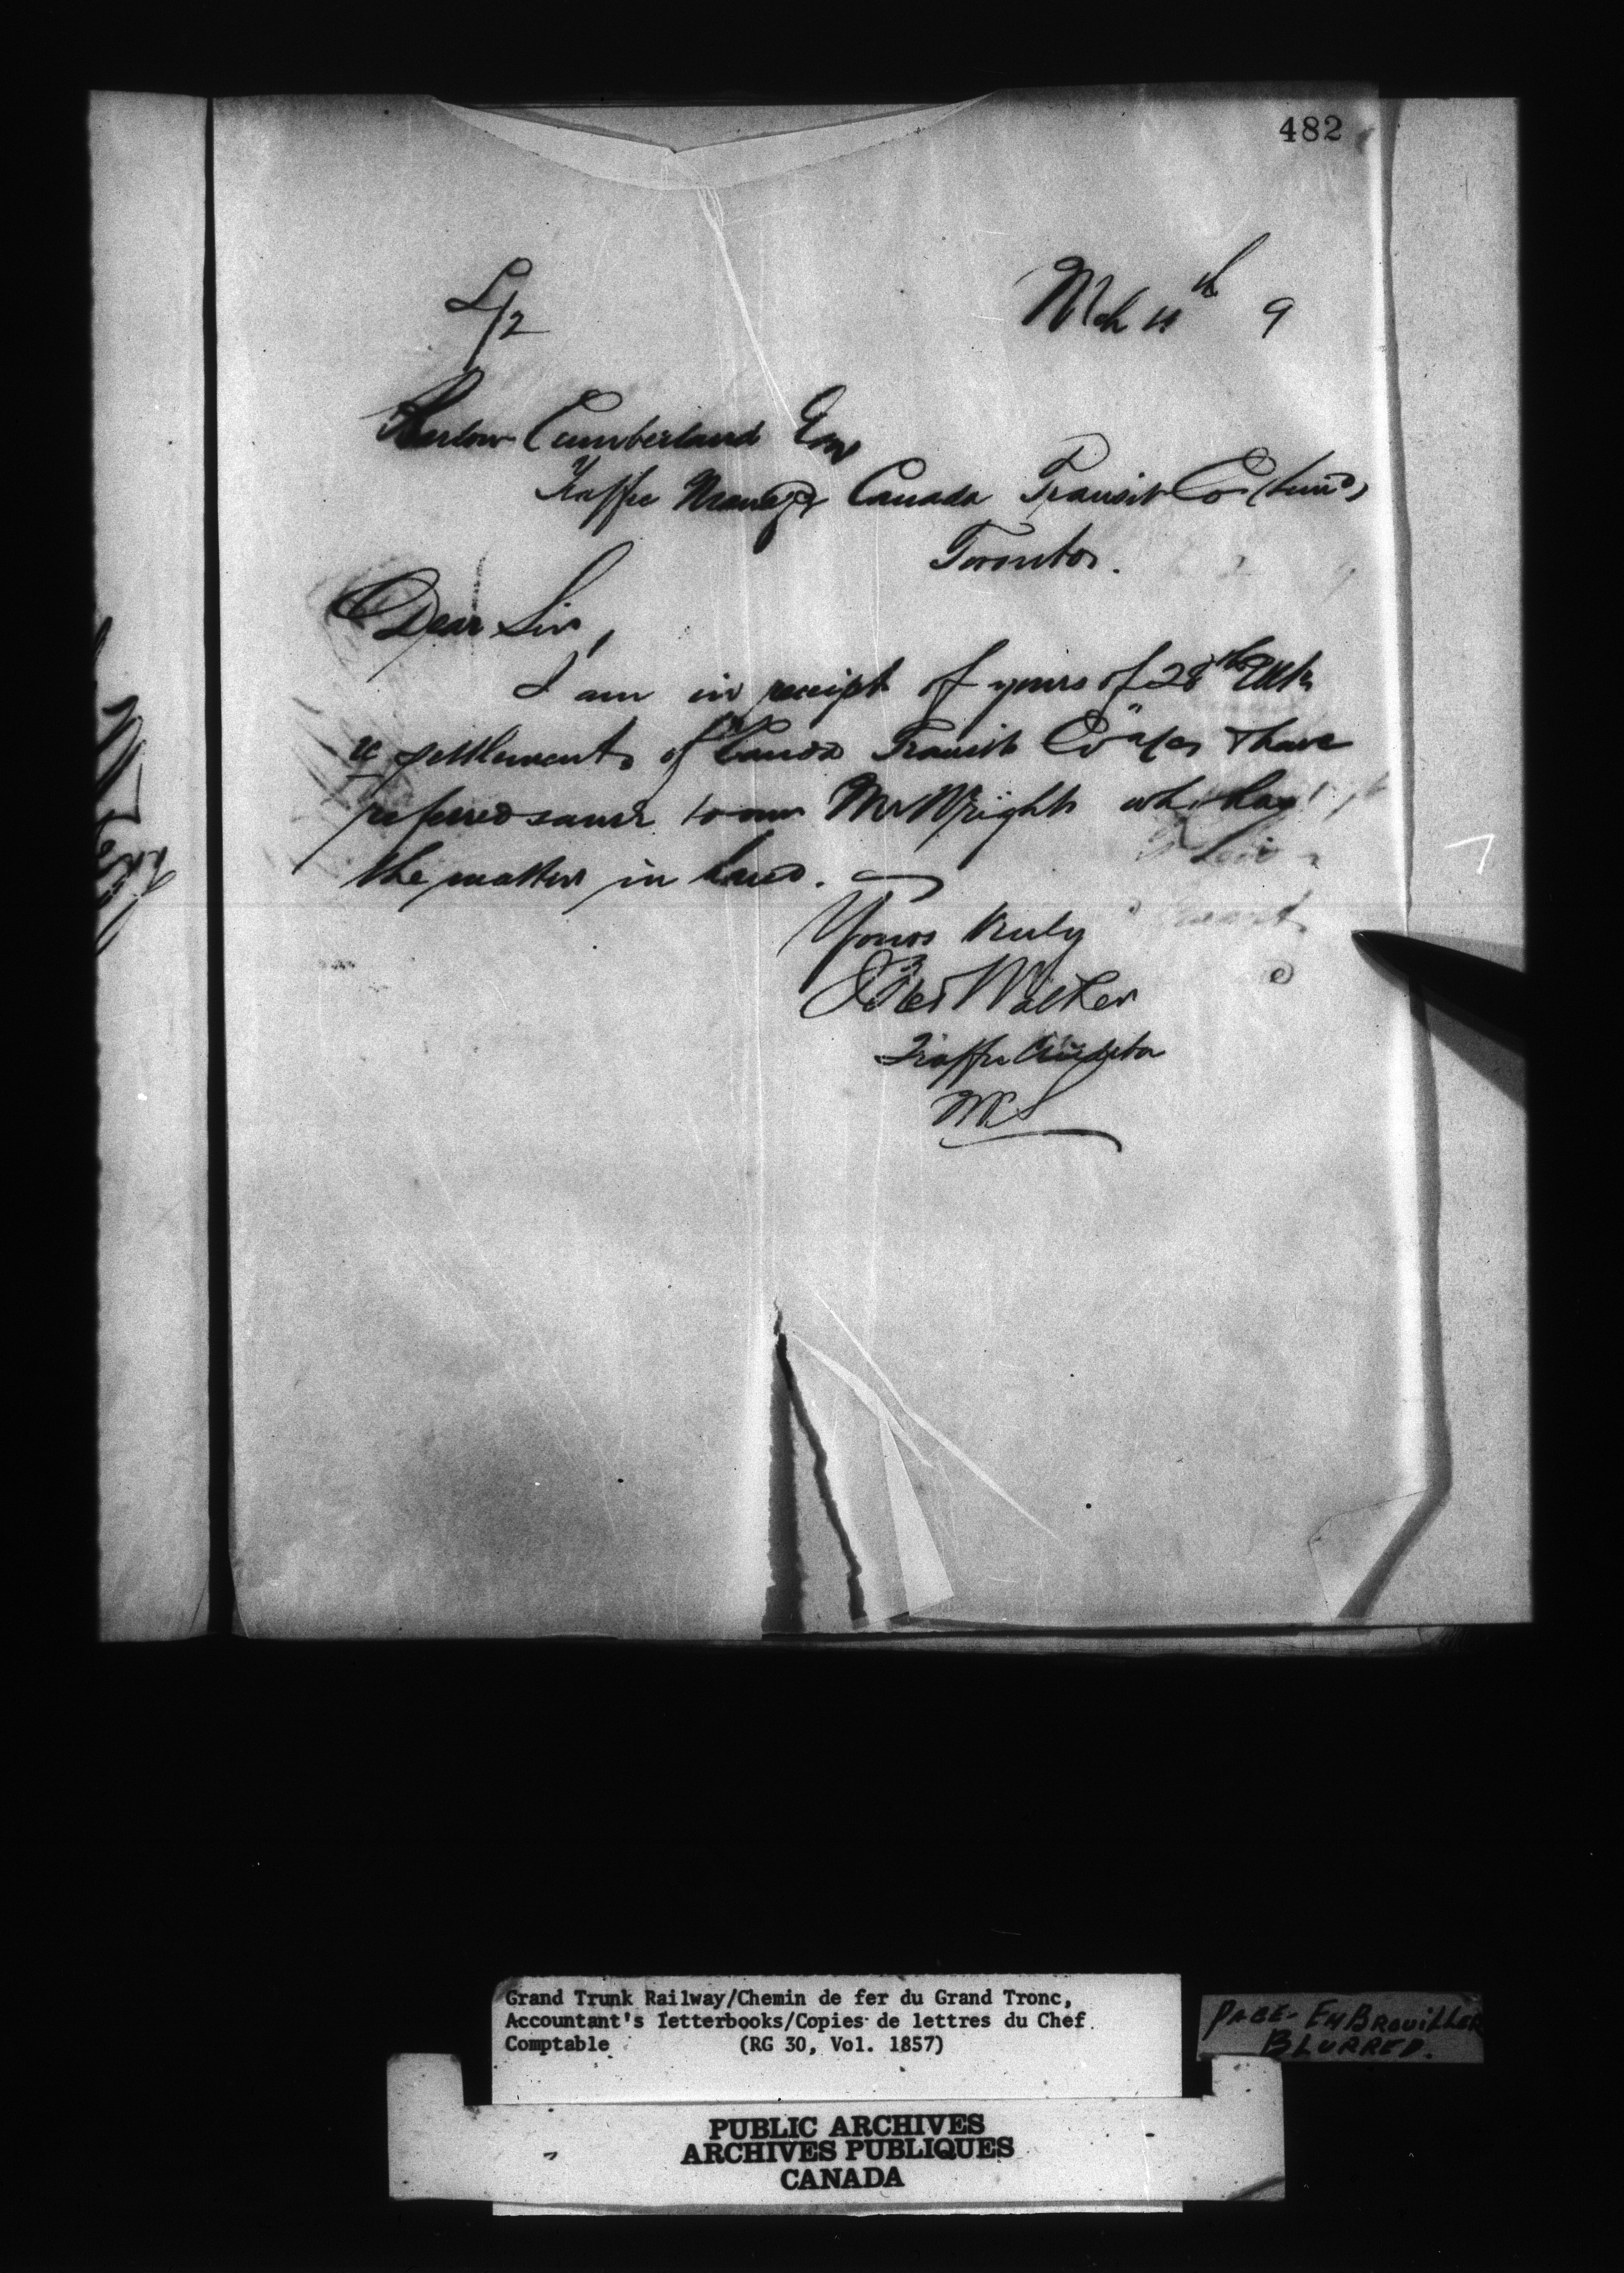 482
L/2
Mch 11th 9
Barlow Cumberland Esq
Traffic Manager Canada Transit Co (Limd)
Toronto.
Dear Sir,
I am in receipt of yours of 28th Ulto
re settlements of Canda Transit Co's a/cs & have
referred same to our Mr Wright who has
the matter in hand.
Yours truly
Walker
Traffic Auditor
Grand Trunk Railway/Chemin de fer du Grand Tronc,
Accountant's letterbooks/Copies de lettres du Chef
Comptable (RG 30, Vol. 1857)
PAGE- EMBROUILLER
BLURRED.
PUBLIC ARCHIVES
ARCHIVES PUBLIQUES
CANADA